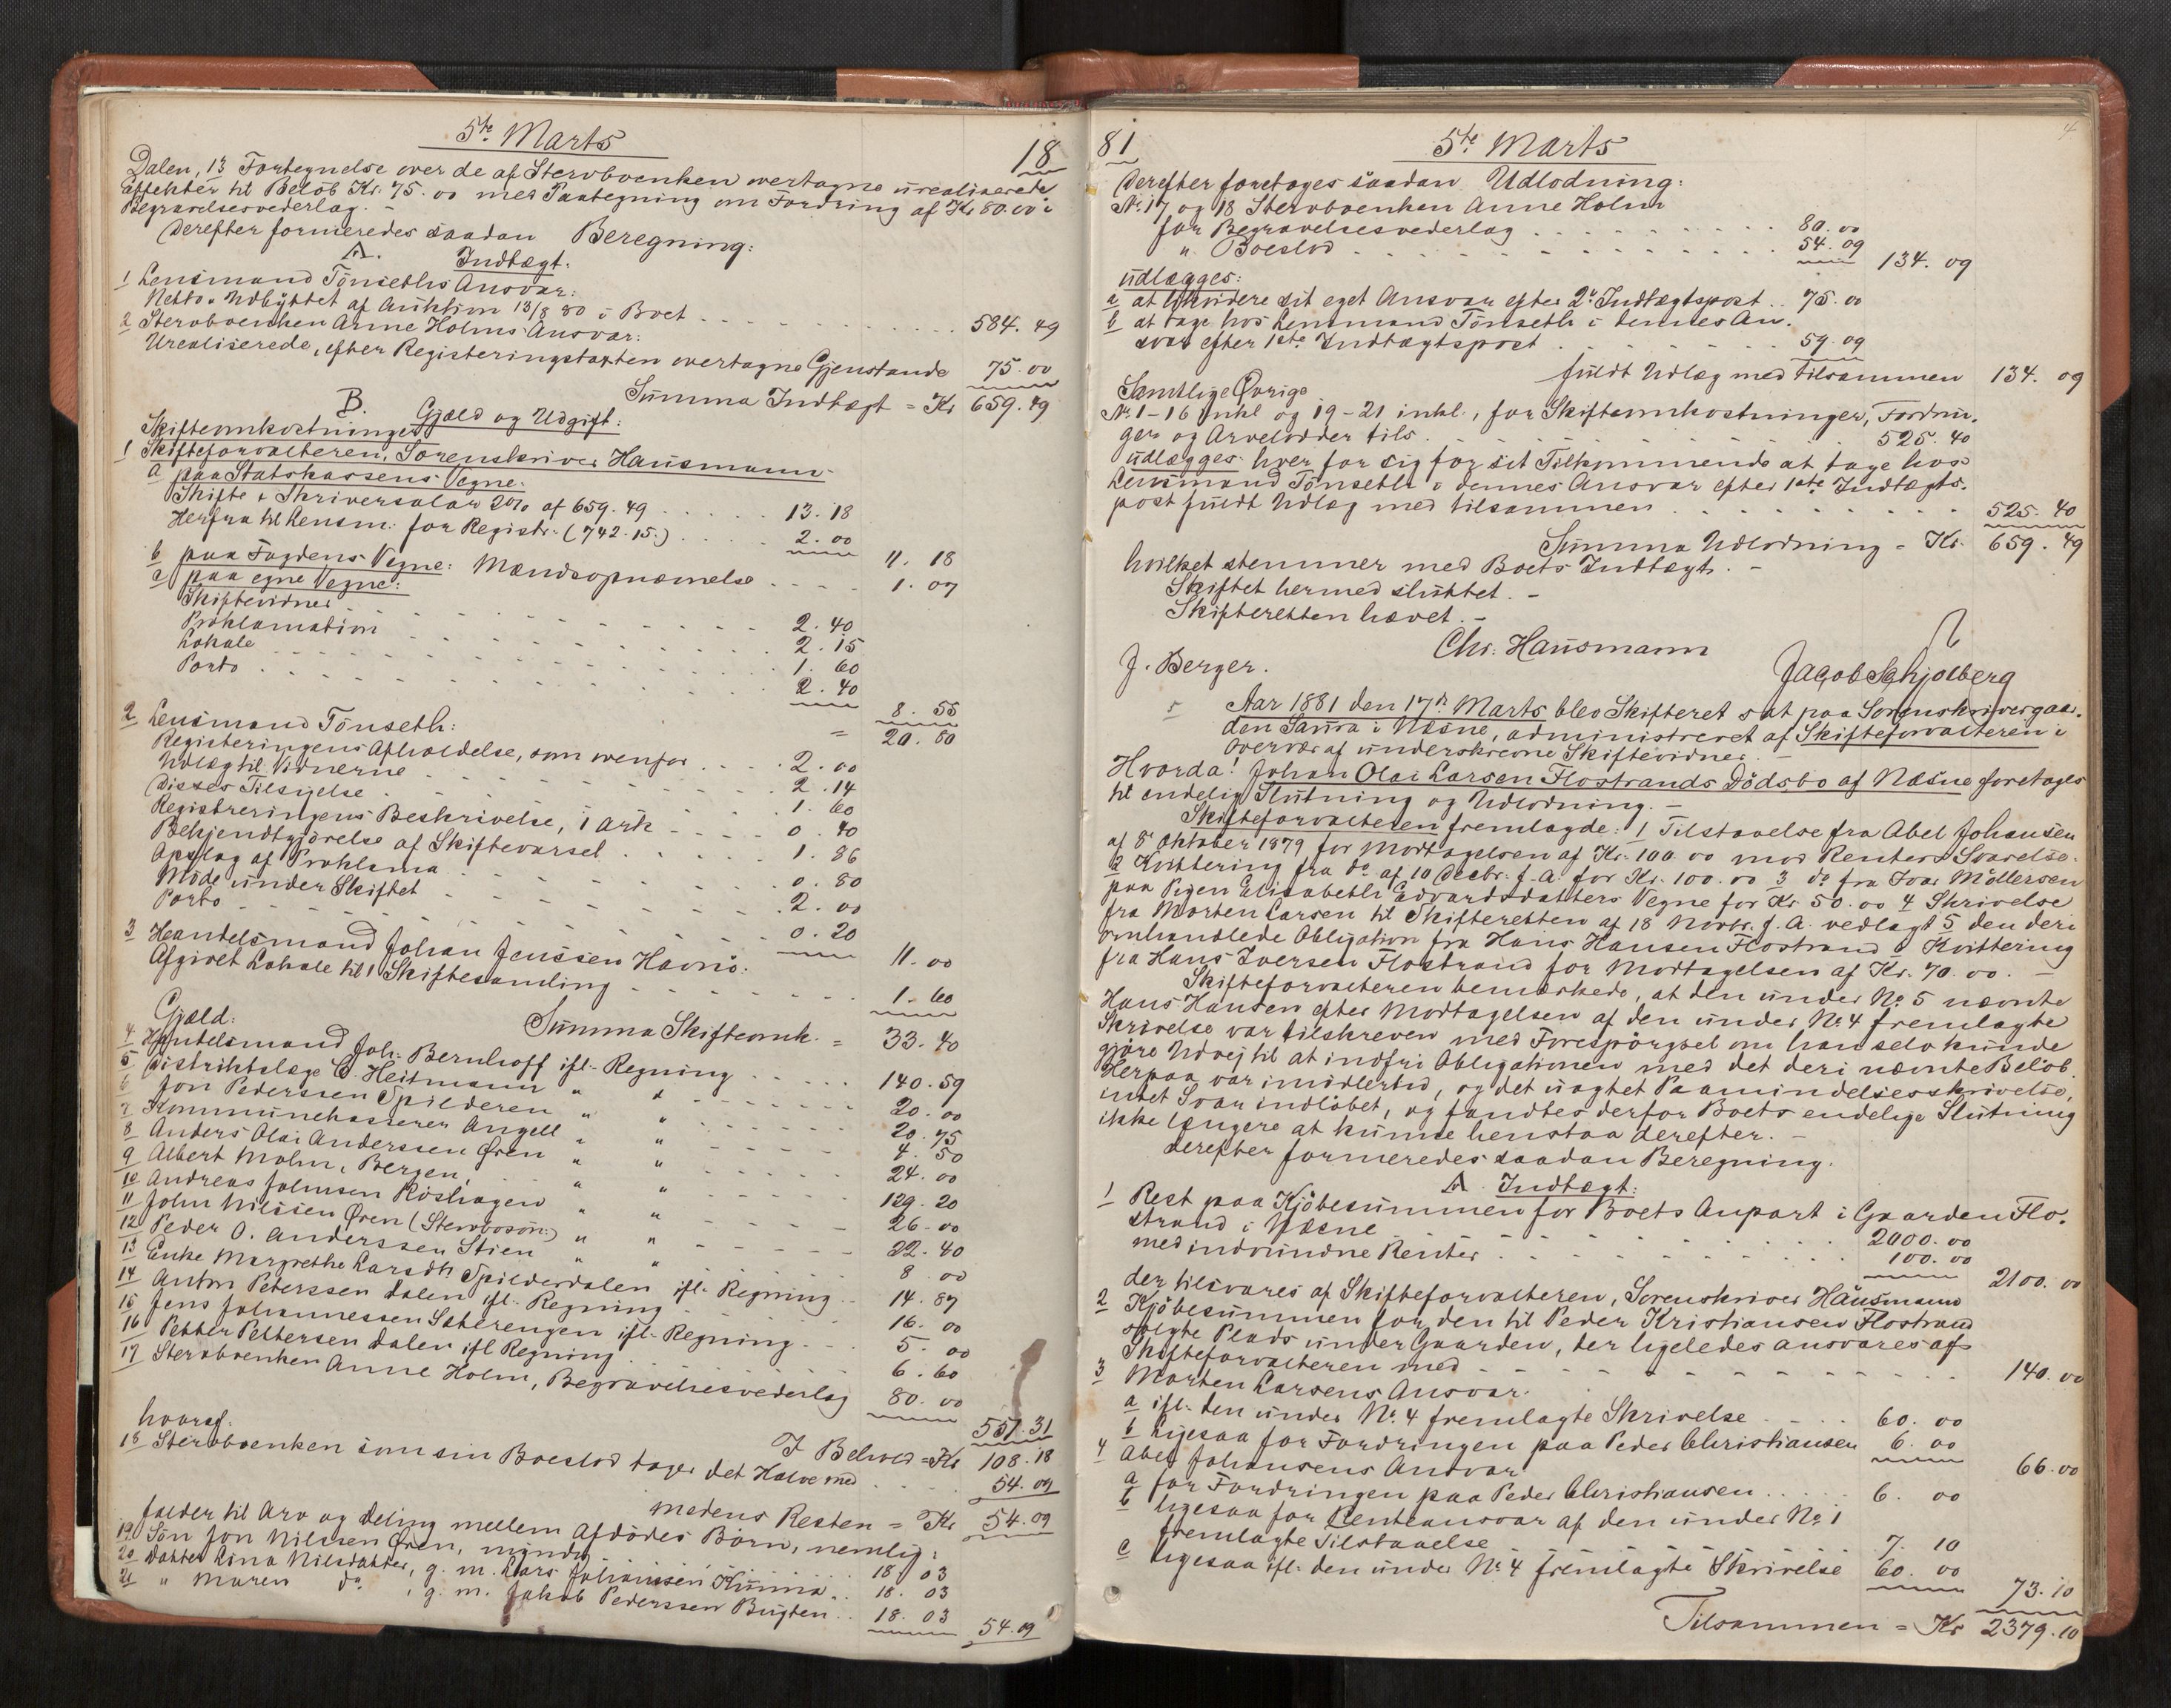 5te Marts
18
Dalen, 13 Fortegnelse over de af Stervboenken overtagne urealiserede
Effekter til Beløb Kr. 75.00 med Paategning om Fordring af Kr 80.00 i
Begravelsesvederlag. -
Derefter formeredes saadan Beregning:
A. Indtægt:
1 Lensmand Tönseths Ansvar:
Netto-Udbyttet af Auktion 13/8 80 i Boet 584.49
2 Stervboenken Anne Holms Ansvar:
Urealiserede, efter Registeringstaxten overtagne Gjenstande 75.00
Summa Indtægt = Kr 659.49
B. Gjæld og Udgift:
Skifteomkostninger
1 Skifteforvalteren, Sorenskriver Hausmann
a paa Statskassens Vegne:
Skifte & Skriversalær 2% af 659.49 13.18
Herfra til Lensm. for Registr. (742.15.) 2.00
11.18
b paa Fogdens Vegne: Mændsopnævnelse 1.07
c paa egne Vegne:
Skiftevidner 2.40
Proklamation 2.15
Lokale 1.60
Porto 2.40
8.55
= 20.80
2 Lensmand Tönseth:
Registeringens Afholdelse, som ovenfor 2.00
Udlæg til Vidnerne 2.14
Disses Tilsigelse 1.60
Registreringens Beskrivelse, 1 Ark 0.40
Bekjendtgjörelse af Skiftevarsel 1.86
Opslag af Proklama 0.80
Möde under Skiftet 2.00
Porto 0.20
11.00
3 Handelsmand Johan Jenssen Havnö:
Afgivet Lokale til 1 Skiftesamling 1.60
Summa Skifteomk. = 33.40
Gjæld:
4 Handelsmand Joh. Bernhoff ifl. Regning 140.59
5 Distriktslæge C. Heitmann " " 20.00
6 Jon Pederssen Spilderen " " 20.75
7 Kommunekasserer Angell " " 4.50
8 Anders Olai Anderssen Ören " " 24.00
9 Albert Mohn, Bergen, " " 129.20
10 Andreas Johnsen Röshagen " " 26.00
11 John Nilssen Ören (Stervbosön) " " 22.40
12 Peder O. Anderssen Stien " " 8.00
13 Enke Margrethe Larsdtr Spilderdalen ifl. Regning 14.87
14 Anton Peterssen Dalen ifl. Regning 16.00
15 Jens Johannessen Sæterengen ifl. Regning 5.00
16 Petter Pettersen Dalen ifl Regning 6.60
17 Stervboenken Anne Holm, Begravelsesvederlag 80.00
551.31
I Behold = Kr 108.18
hvoraf:
18 Stervboenken som sin Boeslod tager det Halve med 54.09
medens Resten = Kr 54.09
falder til Arv og Deling mellem Afdödes Börn, nemlig:
19 Sön Jon Nilssen Ören, myndig 18.03
20 Datter Lina Nilsdatter, g. m. Lars Johanssen Kunna 18.03
21 " Maren do , g. m. Jakob Pederssen Bugten 18.03
54.09
81
5te Marts
4
Derefter foretoges saadan Udlodning:
No 17 og 18 Stervboenken Anne Holm
for Begravelsesvederlag 80.00
" Boeslod 54.09
134.09
udlægges:
a at likvidere sit eget Ansvar efter 2n Indtægtspost 75.00
b at tage hos Lensmand Tönseth i dennes An-
svar efter 1ste Indtægtspost 59.09
fuldt Udlæg med tilsammen 134.09
Samtlige Övrige
No 1-16 inkl og 19-21 inkl., for Skifteomkostninger, Fordrin-
ger og Arvelodder tils. 525.40
udlægges hver for sig for sit Tilkommende at tage hos
Lensmand Tönseth i dennes Ansvar efter 1ste Indtægts-
post fuldt Udlæg med tilsammen 525.40
Summa Udlodning = Kr. 659.49
hvilket stemmer med Boets Indtægt. -
Skiftet hermed sluttet. -
Skifteretten hævet. -
Chr. Hausmann
J. Berger. Jacob Schjelberg
Aar 1881 den 17de Marts blev Skifteret sat paa Sorenskrivergaar-
den Saura i Næsne, administreret af Skifteforvalteren i
Overvær af underskrevne Skiftevidner. -
Hvorda! Johan Olai Larsen Flostrands Dödsbo af Næsne foretoges
til endelig Slutning og Udlodning. -
Skifteforvalteren fremlagde: 1 Tilstaaelse fra Abel Johansen
af 8de Oktober 1879 for Modtagelsen af Kr. 100.00 mod Renters Svarelse.
2 Kvittering fra do af 10 Decbr. f. A. for Kr. 100.00 3 do fra Ivar Möllersen
paa Pigen Elisabeth Edvardsdatters Vegne for Kr 50.00 4 Skrivelse
fra Morten Larsen til Skifteretten af 18 Novbr. f. A. vedlagt 5 den deri
omhandlede Obligation fra Hans Hansen Flostrand 6 Kvittering
fra Hans Iversen Flostrand for Modtagelsen af Kr. 70.00. -
Skifteforvalteren bemærkede, at den under No 5 nævnte
Hans Hansen efter Modtagelsen af den under No 4 fremlagte
Skrivelse var tilskreven med Forespörgsel om han selv kunde
gjöre Udvej til at indfri Obligationen med det deri nævnte Belöb.
Herpaa var imidlertid, og det uagtet Paamindelsesskrivelse,
intet Svar indlöbet, og fandtes derfor Boets endelige Slutning
ikke længere at kunne henstaa derefter. -
Derefter formeredes saadan Beregning.
A. Indtægt:
1 Rest paa Kjöbesummen for Boets Anpart i Gaarden Flo-
strand i Næsne 2000.00
med indvundne Renter 100.00
2100.00
der tilsvares af Skifteforvalteren, Sorenskriver Hausmann
2 Kjöbesummen for den til Peder Kristiansen Flostrand
solgte Plads under Gaarden, der ligeledes ansvares af
Skifteforvalteren med 140.00
3 Morten Larsens Ansvar.
a ifl. den under No. 4 fremlagte Skrivelse 60.00
b Ligesaa for Fordringen paa Peder Christiansen 6.00
66.00
4 Abel Johansens Ansvar
a for Fordringen paa Peder Christiansen 6.00
b ligesaa for Renteansvar af den under No 1
fremlagte Tilstaaelse 7.10
c ligesaa ifl. den under No 4 fremlagte Skrivelse 60.00
73.10
Tilsammen = Kr 2379.10